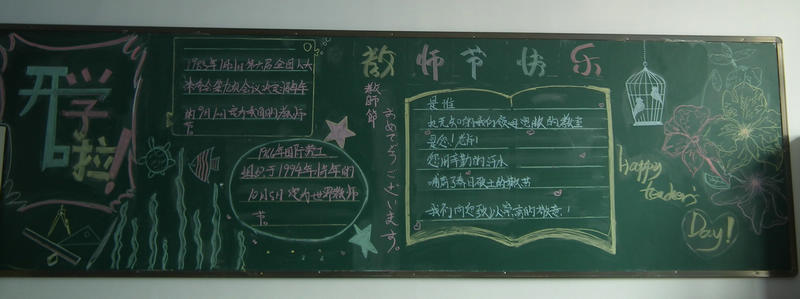 开学啦!
1985年1月21日第六届全国人大
常委会第九次会议决定将每年
的9月10日定为我国的教师
节
1966年国际劳工
组织于1994年将每年的
10月5日定为世界教师
节。
教师节快乐
教師節
おめでとうございます。
是谁
是您!老师!
您用辛勤的汗水
我们向您致以崇高的敬意!
Happy
teacher's
Day!